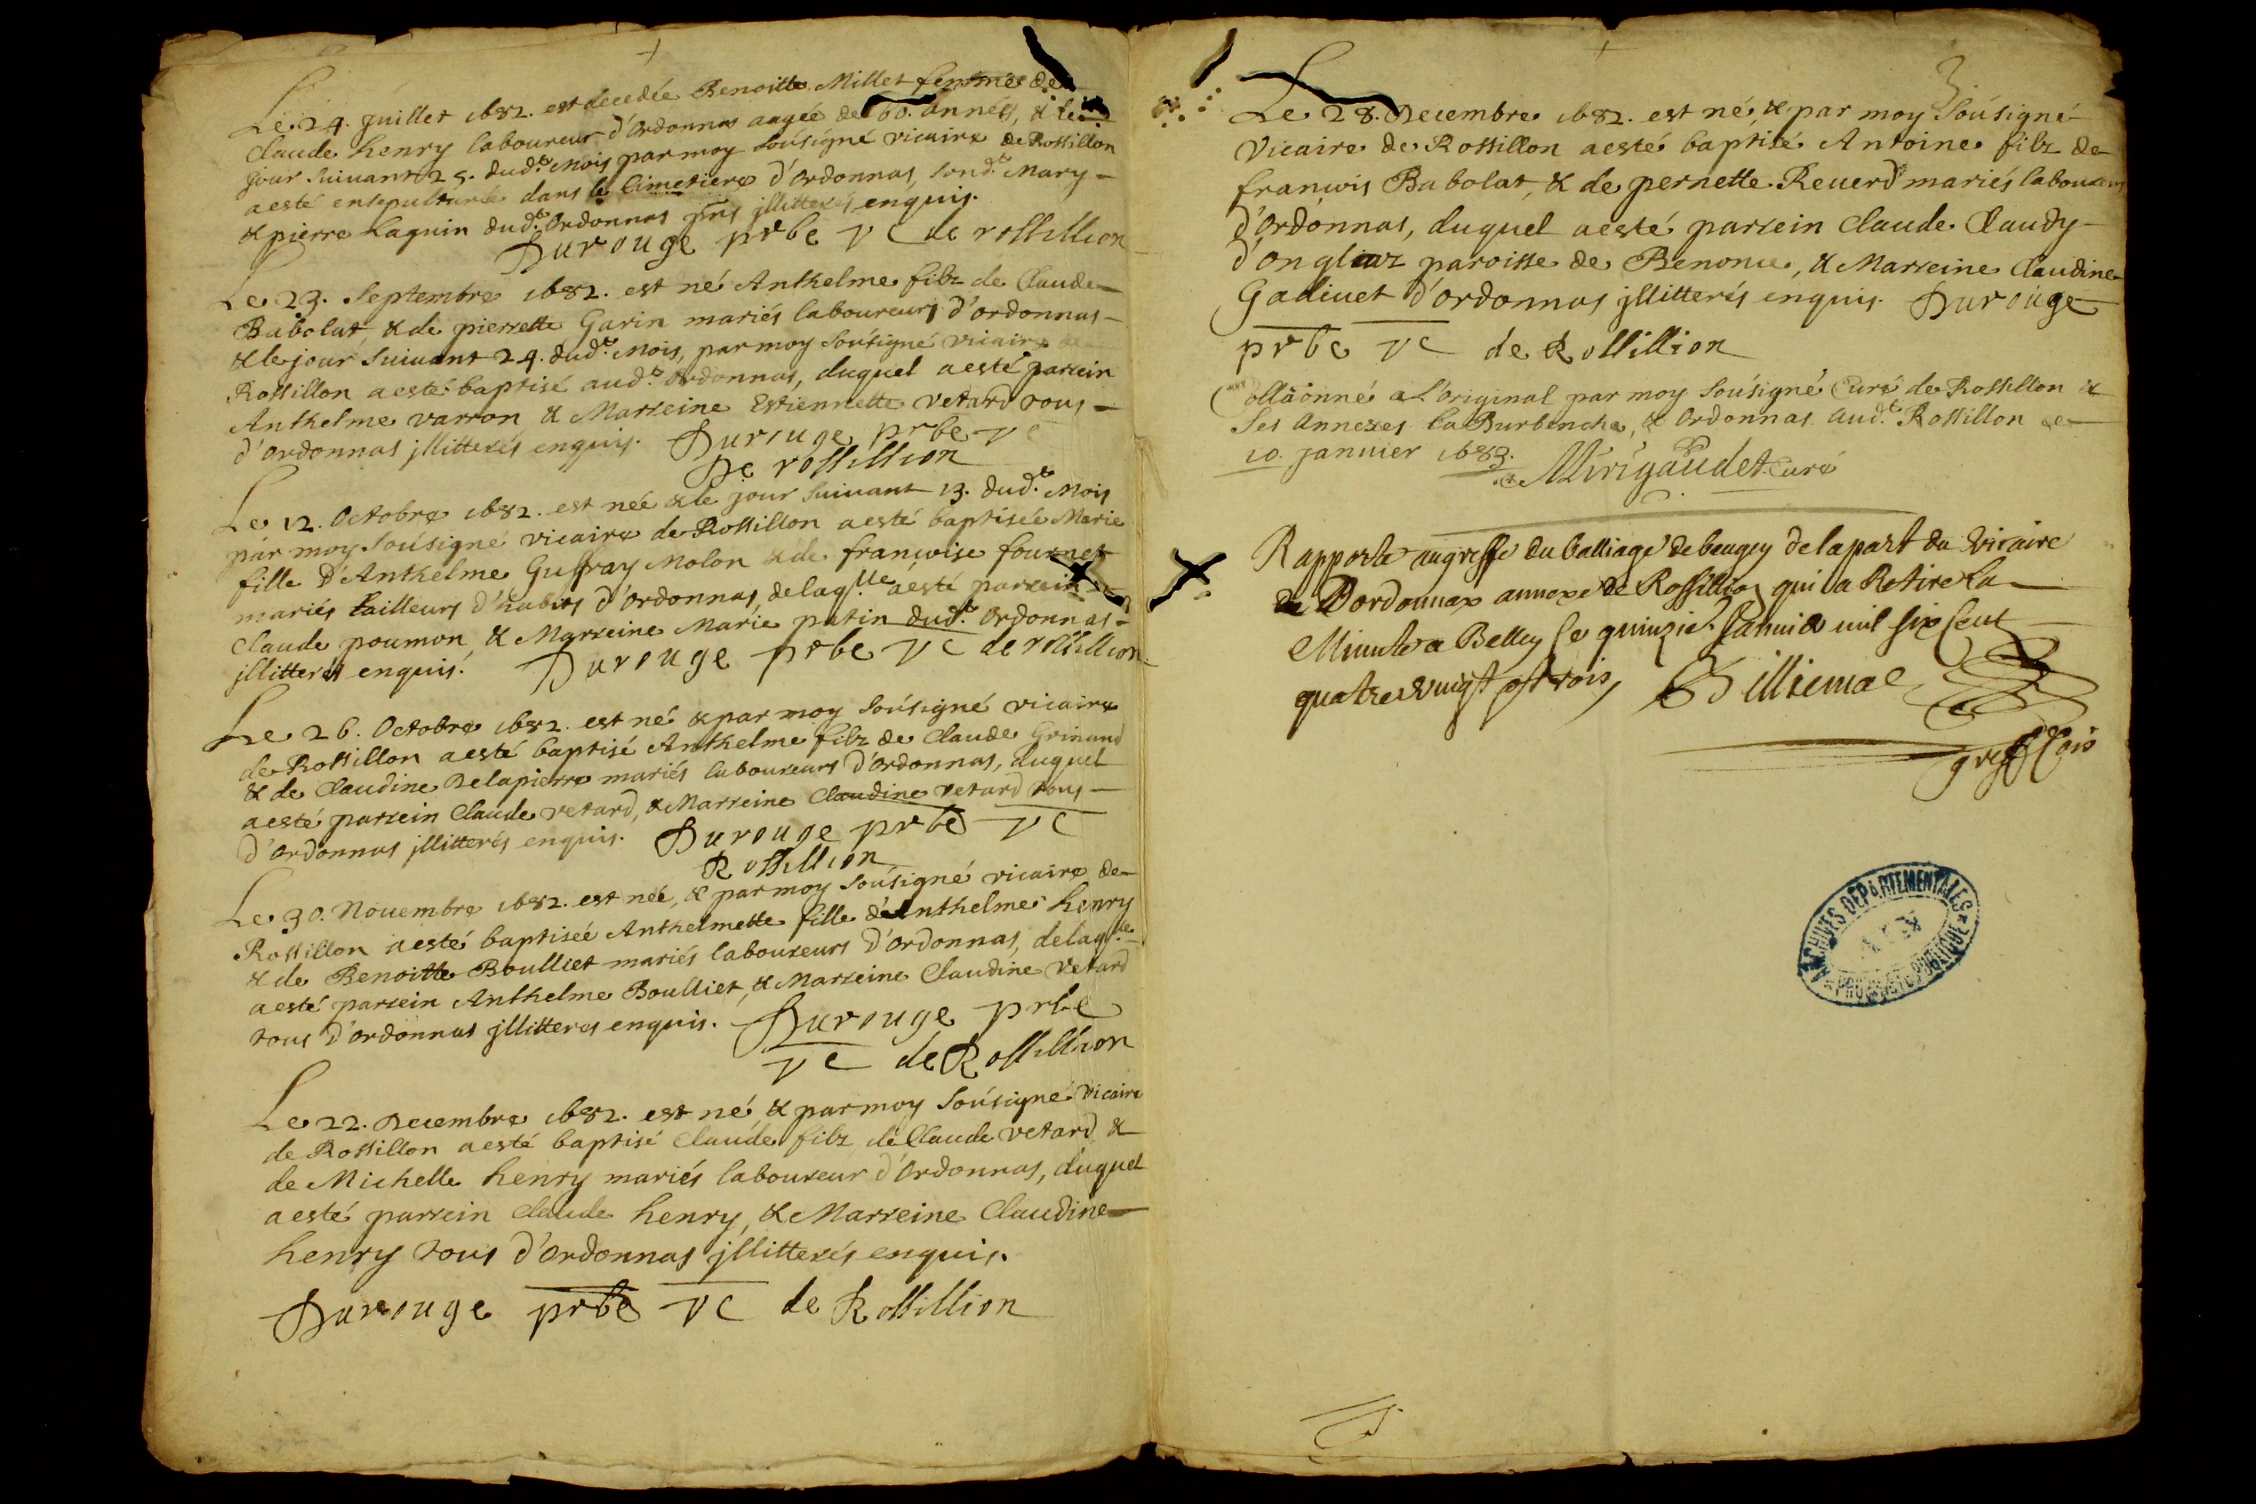 Le 24. Juillet 1682. est decedée Benoitte Millet femme de
Claude henry laboureur d'Ordonnas aagée de 60. années, & le
jour suivant 25. dud.t Mois par moy sousigné vicaire de Rossillon
a esté ensepulturée dans le Cimetiere d'Ordonnas, Mary
& pierre Laguin dud.t Ordonnas jllitterés enquis.
Durouge prbe vc de rossillion
Le 23. Septembre 1682. est né Anthelme filz de Claude
Babolat, & de pierrette Garin mariés laboureurs d'ordonnas
& le jour suivant 24. dud.t Mois, par moy sousigné vicaire de
Rossillon a esté baptisé aud.t Ordonnas, duquel a esté parrein
Anthelme varron & Marreine Estiennette vetard tous
d'Ordonnas jllitterés enquis. Durouge prbe vc
De rossillion
Le 12. Octobre 1682. est née & le jour suivant 13. dud.t Mois
par moy sousigné vicaire de Rossillon a esté baptisée Marie
fille D'Anthelme Guffray Molon & de françoise fournet
mariés tailleurs d'habits d'Ordonnas, delaq.lle a esté parrein
Claude poumon, & Marreine Marie patin dud.t Ordonnas
jllitterés enquis. Durouge prbe vc de rossillion
Le 26. Octobre 1682. est né & par moy sousigné vicaire
de Rossillon a esté baptisé Anthelme filz de Claude Grinand
& de Claudine Delapierre mariés laboureurs d'Ordonnas, duquel
a esté parrein Claude vetard, & Marreine Claudine vetard tous
d'Ordonnas jllitterés enquis. Durouge prbe vc
Rossillion
Le 30. Novembre 1682. est née, & par moy sousigné vicaire de
Rossillon a esté baptisée Anthelmette fille d'Anthelme henry
& de Benoitte Boulliet mariés laboureurs d'Ordonnas, delaq.lle
a esté parrein Anthelme Boulliet, & Marreine Claudine Vetard
tous d'Ordonnas jllitterés enquis. Durouge prbe
vc de Rossillion
Le 22. Decembre 1682. est né & par moy sousigné vicaire
de Rossillon a esté baptisé Claude filz de Claude vetard &
de Michelle henry mariés laboureur d'Ordonnas, duquel
a esté parrein Claude henry, & Marreine Claudine
henry tous d'Ordonnas jllitterés enquis.
Durouge prbe vc de Rossillion
3
Le 28. Decembre 1682. est né, & par moy sousigné
Vicaire de Rossillon a esté baptisé Antoine filz de
françois Babolat, & de pernette Reverd mariés laboureurs
d'Ordonnas, duquel a esté parrein Claude Claudy
d'Ongliaz paroisse de Benonce, & Marreine Claudine
Gadiuet d'ordonnas jllitterés enquis. Durouge
prbe vc de Rossillion
Collãonné a L'original par moy sousigné Curé de Rossillon &
ses Annexes La Burbanche, & Ordonnas Aud.t Rossillon ce
10. janvier 1683.
Mirigaudet Curé
Rapporté au greffe du balliage de beugey de la part du Vicaire
de Dordonnax annexe de Rossillion qui a Retire La
Minute a Belley le quinzie. Janvie mil six Cent
quatre vingt et trois, Billiema
greff Cois
ARCHIVES DÉPARTEMENTALES
AIN
PROPRIÉTÉ PUBLIQUE